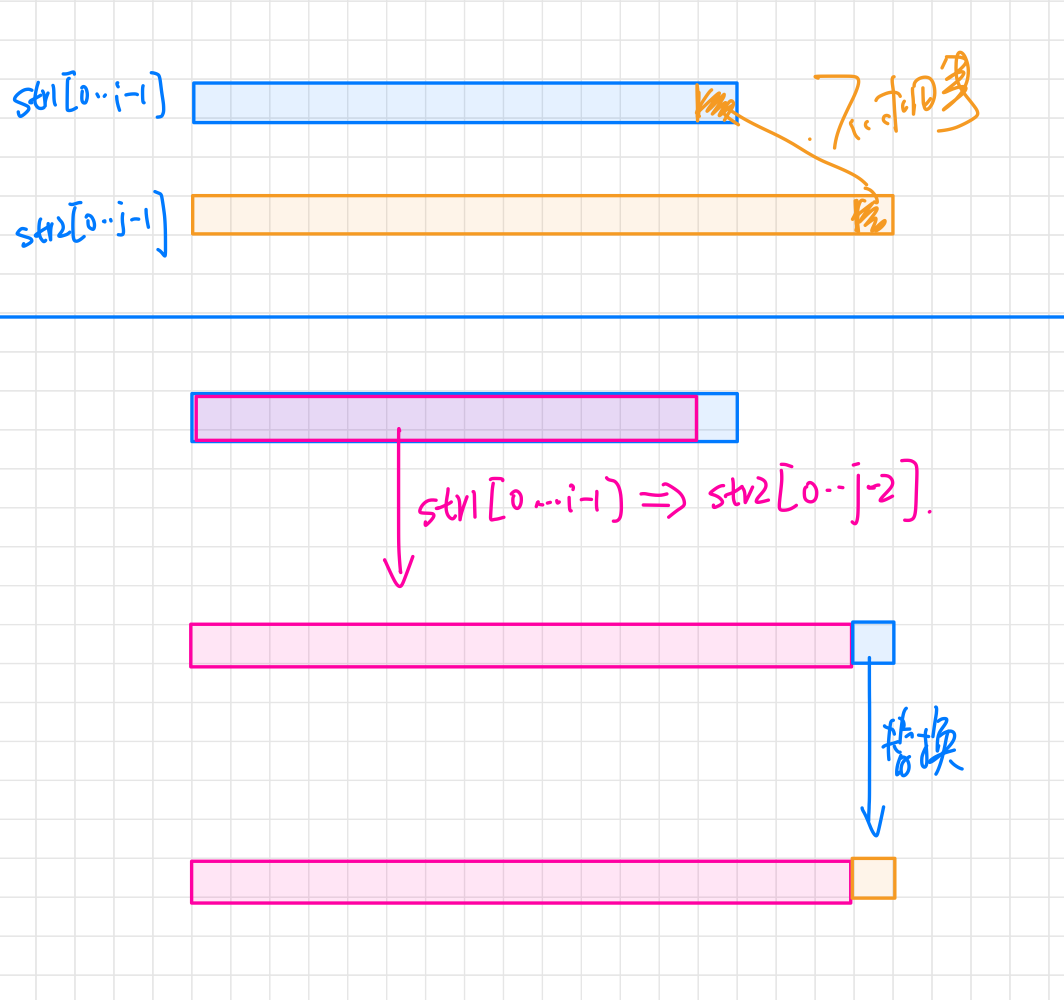 str1[0..i-1]
不相等
str2[0..j-1]
str1[0...i-1] => str2[0..j-2].
替换